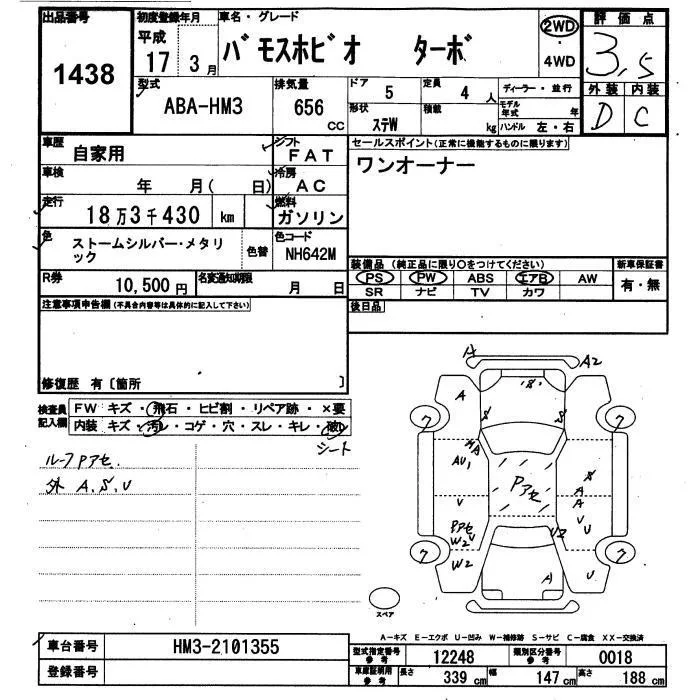 出品番号
1438
初度登録年月
平成
17 3月
車名・グレード
バモスホビオ ターボ
2WD
・
4WD
評価点
3.5
外装 内装
D C
型式
ABA-HM3
排気量
656
cc
ドア
5
定員
4 人
形状
ステW
積載
kg
ディーラー・並行
モデル年式 年
ハンドル 左・右
車歴
自家用
シフト
FAT
車検
年 月( 日)
冷房
AC
走行
18万3千430 km
燃料
ガソリン
色
ストームシルバー・メタリ
ック
色替
色コード
NH642M
R券
10,500円
名変通知期限
月 日
セールスポイント(正常に機能するものに限ります)
ワンオーナー
装備品(純正品に限り○をつけてください)
PS PW ABS エアB AW
SR ナビ TV カワ
新車保証書
有・無
後日品
注意事項申告欄(不具合内容等は具体的に記入して下さい)
修復歴 有〔箇所 〕
検査員
記入欄
FW キズ・飛石・ヒビ割・リペア跡・×要
内装 キズ・汚レ・コゲ・穴・スレ・キレ・破レ
シート
ルーフPアセ.
外 A.S.U
A
A2
A
S
S
S
7
7
MA
AU1
Pアセ
S
A
A
U
U
U
Pアセ
W2 U
U2
7
7
W2
A
U
スペア
A-キズ E-エクボ U-凹み W-補修跡 S-サビ C-腐食 XX-交換済
車台番号
HM3-2101355
登録番号
型式指定番号
参考
12248
類別区分番号
参考
0018
車庫証明用
参考
長さ
339 cm
幅
147 cm
高さ
188 cm